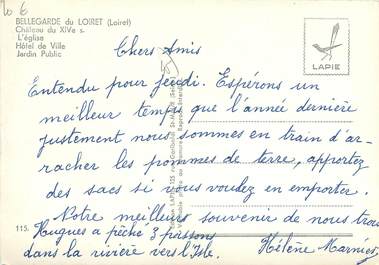 20 6
BELLEGARDE du LOIRET (Loiret)
Château du XIVe s.
L'église
Hôtel de Ville
Jardin Public
LAPIE
Chers Amis
Entendu pour jeudi. Espérons un
meilleur temps que l'année dernière
justement nous sommes en train d'ar-
racher les pommes de terre, apportez
des sacs si vous voulez en emporter.
Notre meilleurs souvenir de nous trois
115.
Hugues a pêché 3 poissons
dans la rivière vers l'Isle. Hélène